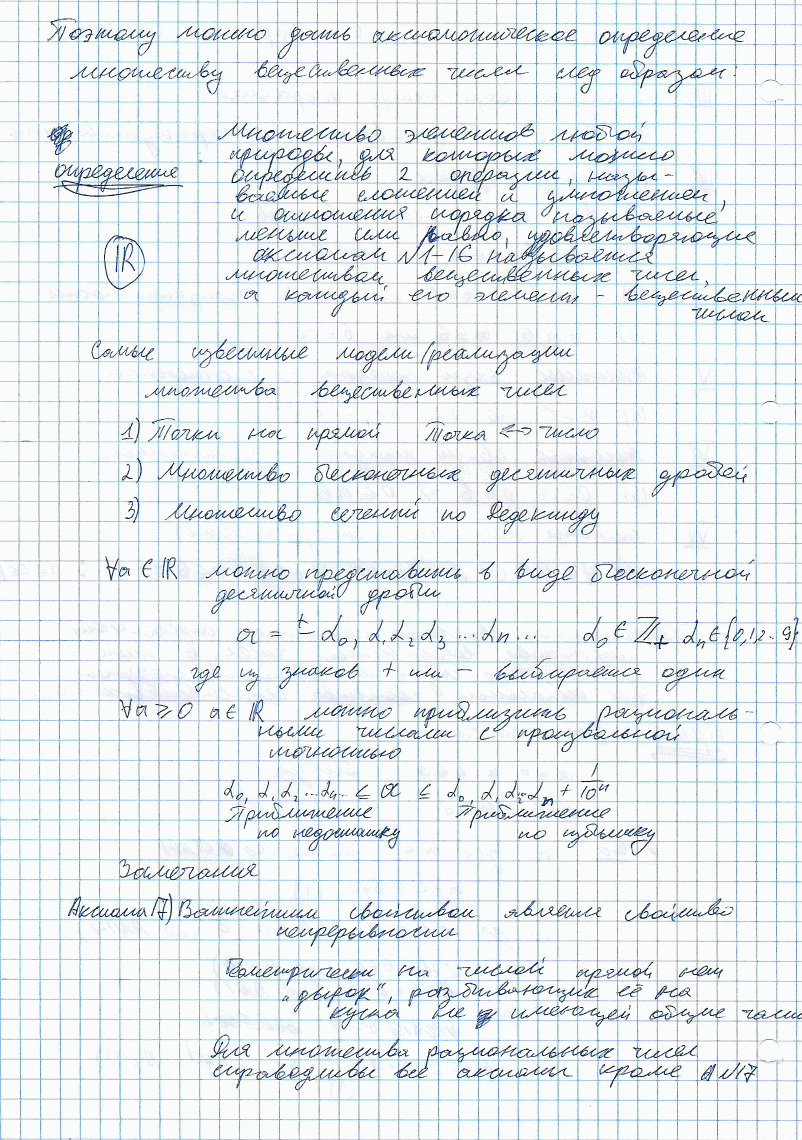 Поэтому можно дать аксиоматическое определение
множеству вещественных чисел след образом:
определение
ℝ
Множество элементов любой
природы, для которых можно
определить 2 операции, назы-
ваемые сложением и умножением,
и отношения порядка называемые
меньше или равно, удовлетворяющие
аксиомам №1-16 называется
множеством вещественных чисел,
а каждый его элемент - вещественным
числом
Самые известные модели/реализации
множества вещественных чисел
1) Точки на прямой Точка <-> число
2) Множество бесконечных десятичных дробей
3) Множество сечений по Дедекинду
∀a ∈ ℝ можно представить в виде бесконечной
десятичной дроби
a = ± α₀, α₁ α₂ α₃ ... αₙ ... α₀ ∈ ℤ₊ αₙ ∈ {0,1,2..9}
где из знаков + или - выбирается один
∀a ⩾ 0 a ∈ ℝ можно приблизить рациональ-
ными числами с произвольной
точностью
α₀, α₁ α₂ ... αₙ.. ≤ a ≤ α₀, α₁ α₂..αₙ + 1/10ⁿ
Приближение Приближение
по недостатку по избытку
Замечания
Аксиома 17) Важнейшим свойством является свойство
непрерывности
Геометрически на числой прямой нет
„дырок“, разбивающих её на
куска не имеющей общие части
Для множества рациональных чисел
справодливы все аксиомы кроме А №17